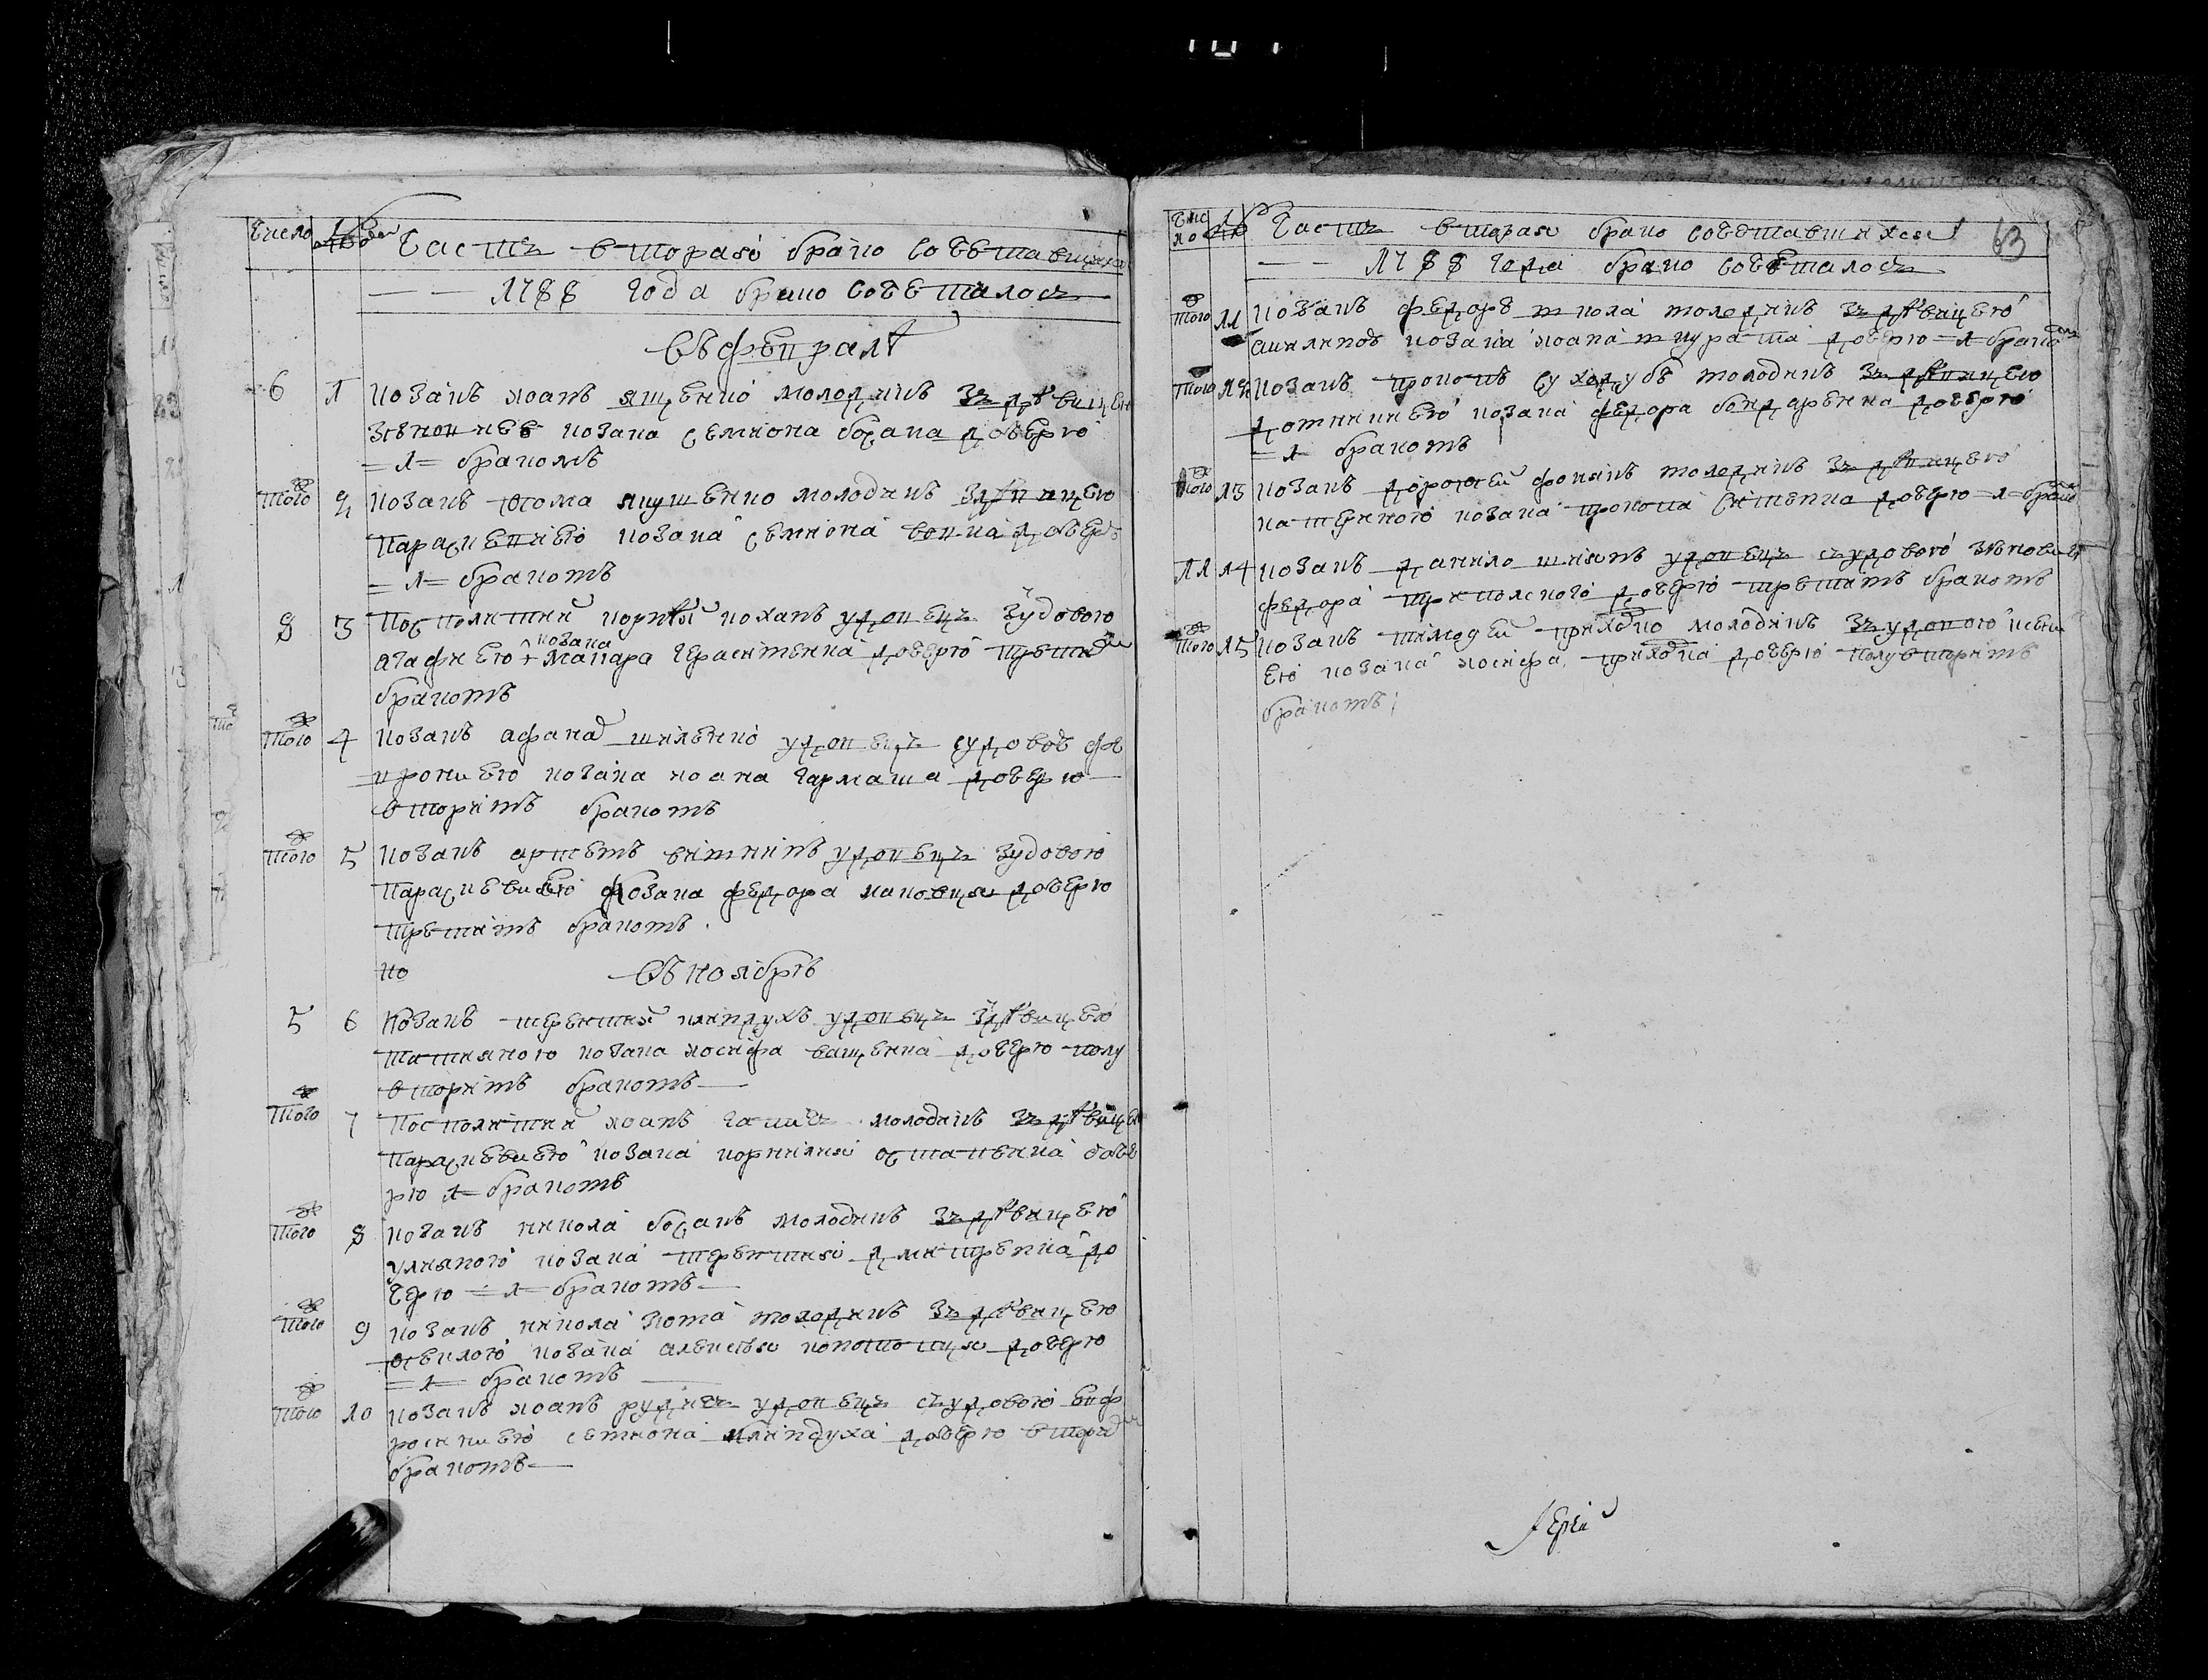 Число
Часть вторая брако сочетавшихся
1788 года брако сочеталось
Въ феврале
6 1 козакъ иоанъ ященко молодикъ зъ девицею
козака семиона босака дочерю
=1= бракомъ
того 2 козакъ фома якушенко молодикъ з девицею
параскевиею козака семиона вовка дочерю
=1= бракомъ
8 3 посполитий корней кохань удовецъ зудовою
козака
агафиею макара герасименка дочерю третим
бракомъ
того 4 козакъ афана шиленко удовецъ судовою фе
вронiею козака иоана гармаша дочерю
вторимъ бракомъ
того 5 козакъ артемъ удовецъ зудовою
параскевиею козака федора маковця дочерю
третимъ бракомъ
но Въ ноябре
5 6 козакъ терентий киндухъ удовецъ з девицею
татияною козака иосифа ващенка дочерю полу
вторимъ бракомъ
того 7 посполитий иоанъ молодикъ зъ девицею
параскевиею козака корнилия остапенка доче
рю 1 бракомъ
того 8 козакъ никола босакъ молодикъ зъ девицею
улияною козака терентия дмитренка до
черю =1= бракомъ
того 9 козакъ никола зюма молодикъ зъ девицею
козака алексея дочерю
=1= бракомъ
того 10 козакъ иоанъ рудичъ удовецъ съудовою евф
росиниею семиона киндуха дочерю вторим
бракомъ
Число
Часть вторая брако сочетавшихся 63
1788 года брако сочеталось
того 11 козакъ федоръ школа молодикъ зъ девицею
козака иоана дочерю =1= браком
того 12 козакъ прокопъ суходубъ молодикъ зъ девицею
домникиею козака федора бондаренка дочерю
=1= бракомъ
того 13 козакъ дорофей фоминъ молодикъ зъ девицею
катериною козака прокопа ситенка дочерю =1= браком
11 14 козакъ данило шиянъ удовецъ съудовою
федора дочерю третимъ бракомъ
того 15 козакъ тимофей приходко молодикъ зъ удовою
ею козака иосифа приходка дочерю полувторимъ
бракомъ
Iерей